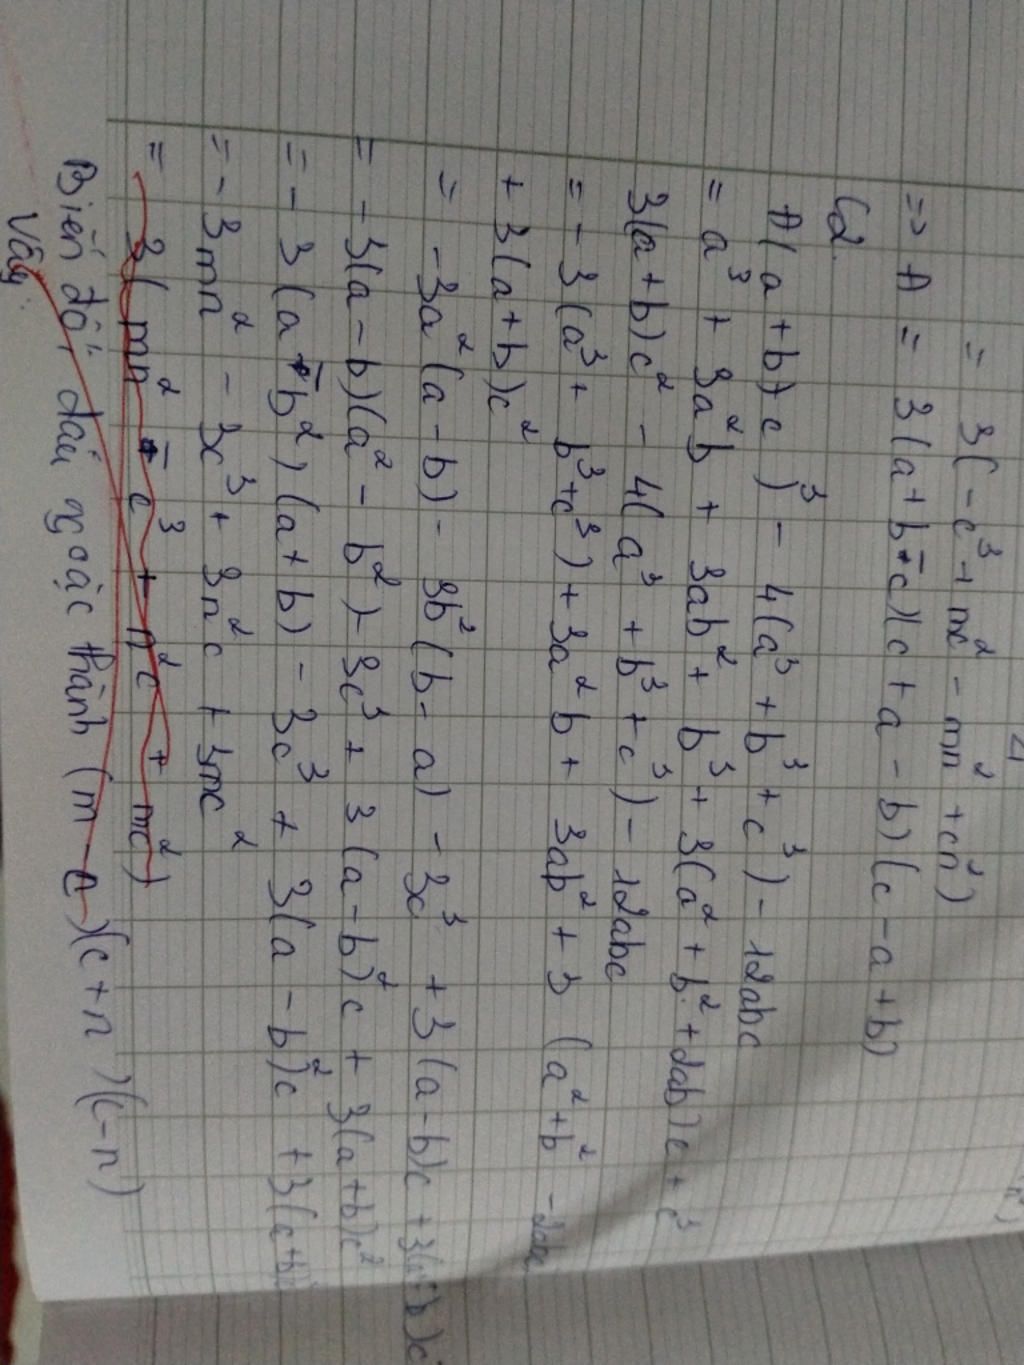 = 3(-c³ + mc² - mn² + cn²)
=> A = 3(a + b - c)(c + a - b)(c - a + b)
C2.
A(a + b) c )³ - 4(a³ + b³ + c³) - 12abc
= a³ + 3a²b + 3ab² + b³ + 3(a² + b² + 2ab)c + c³
3(a + b)c² - 4(a³ + b³ + c³) - 12abc
= -3(a³ + b³ + c³) + 3a²b + 3ab² + 3(a² + b² - 2abc
+ 3(a + b)c²
= -3a²(a - b) - 3b²(b - a) - 3c³ + 3(a - b)c + 3(a + b)c
= -3(a - b)(a² - b²) - 3c³ + 3(a - b)²c + 3(a + b)c²
= -3(a - b²)(a + b) - 3c³ + 3(a - b)²c + 3(a + b)
= -3mn² - 3c³ + 3n²c + 3mc²
= 3(mn² - c³ + n²c + mc²)
Biến đổi dấu ngoặc thành (m - c)(c + n)(c - n)
Vậy: